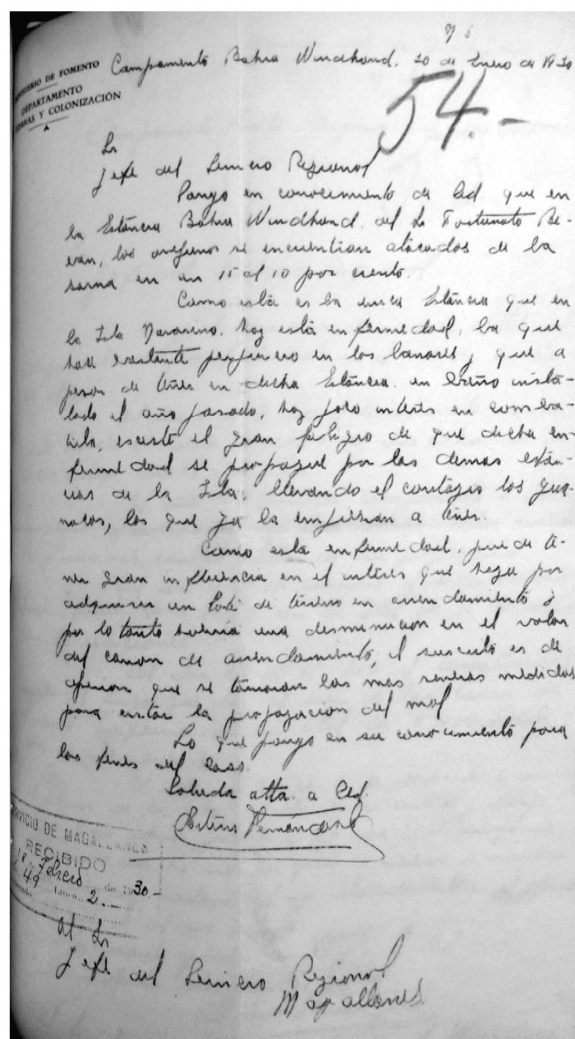 MINISTERIO DE FOMENTO
DEPARTAMENTO
TIERRAS Y COLONIZACIÓN
Campamento Bahia Windhond. 20 de Enero de 1930
54.-
Sr
Jefe del Servicio Regional
Pongo en conocimiento de Ud. que en
la Estáncia Bahia Windhond. del Sr Fortunato Be-
van, los ovejunos se encuentran atacados de la
sarna en un 15 al 10 por ciento.
Como está es la unica Estáncia que en
la Isla Navarino. hay está enfermedad, la que
hace bastante perjuicio en los lanares, y que a
pesar de tener en dicha Estáncia. un Baño insta-
lado el año pasado, hay poco interes en comba-
tirla, existe el gran peligro de que dicha en-
fermedad se propague por las demas están-
cias de la Isla, llevando el contagio los gua-
nacos, los que ya la empiesan a tener.
Como está enfermedad, puede te-
ner gran influencia en el interés que haya por
adquirir un Lote de terreno en arrendamiento y
por lo tanto habria una desminucion en el valor
del canon de arrendamiento, el suscrito es de
opinion que se tomaran las mas serias medidas
para evitar la propagacion del mal
Lo que pongo en su conocimiento para
los fines del caso.
Saluda atta. a Ud.
Hernández
SERVICIO DE MAGALLANES
RECIBIDO
18 Febrero de 1930-
49 2.-
Al Sr
Jefe del Servicio Regional
Magallanes